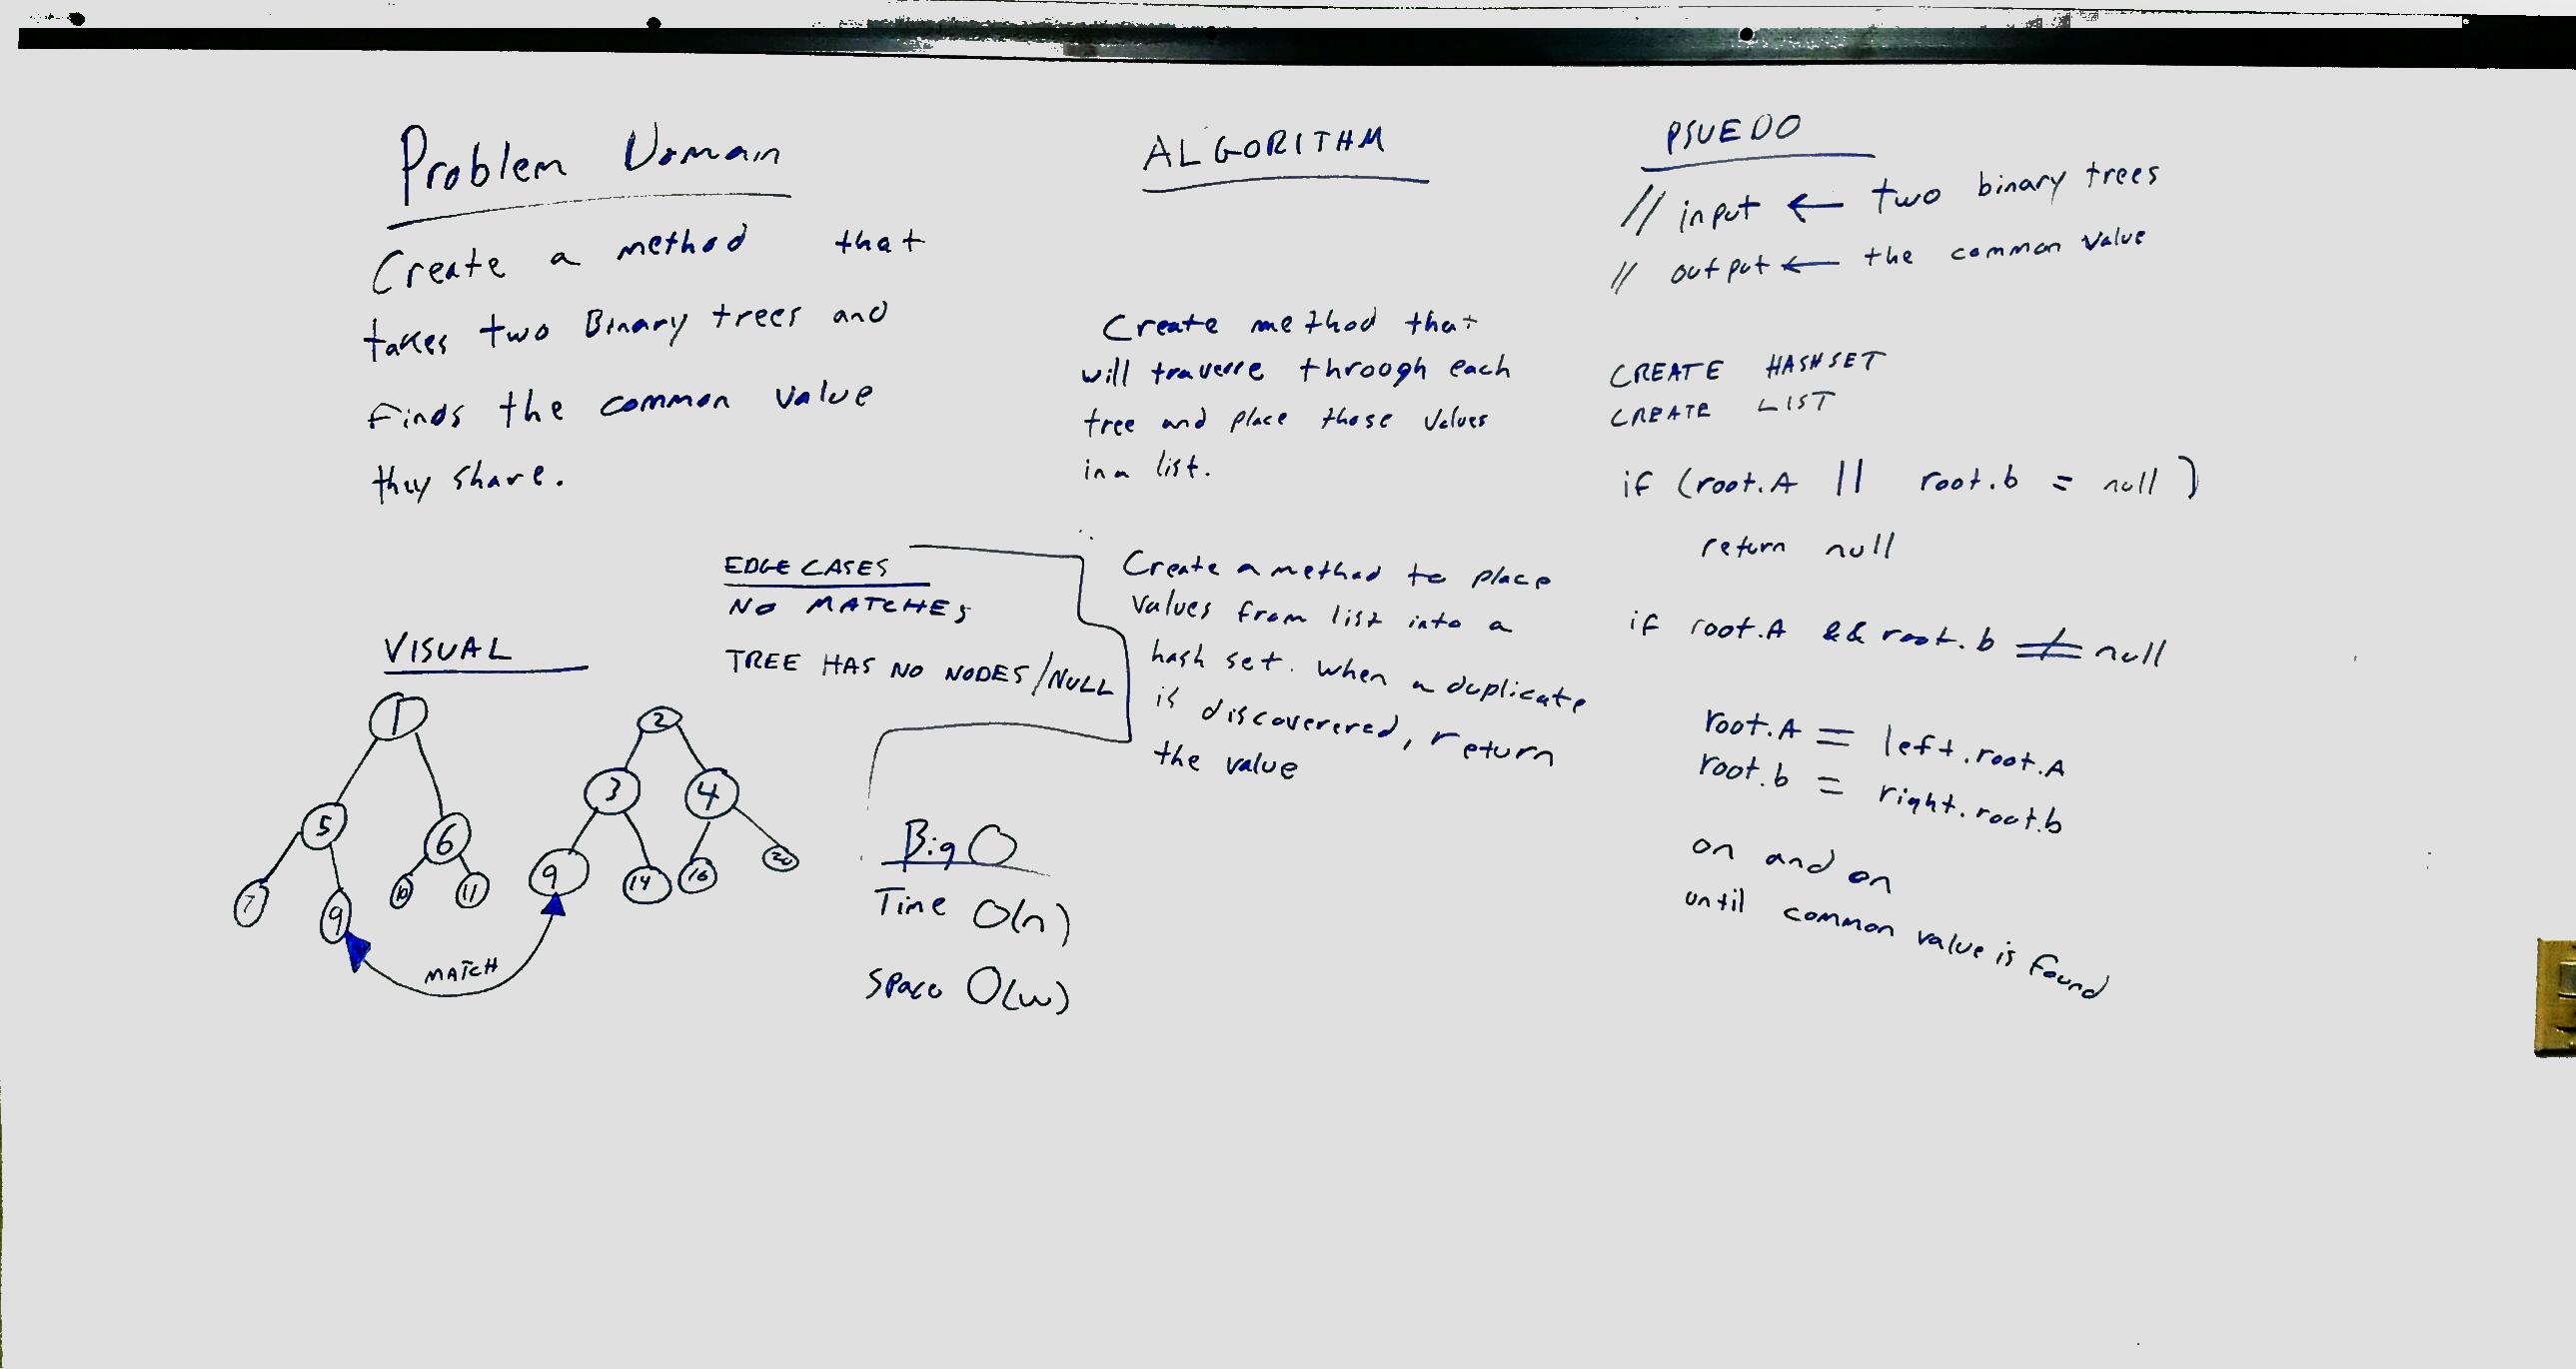 Problem Domain
Create a method that
takes two Binary trees and
finds the common value
they share.
EDGE CASES
NO MATCHES
TREE HAS NO NODES/NULL
VISUAL
1
5
6
7
9
10
11
2
3
4
9
14
16
20
MATCH
Big O
Time O(n)
Space O(w)
ALGORITHM
Create method that
will traverse through each
tree and place those values
in a list.
Create a method to place
values from list into a
hash set. when a duplicate
is discoverered, return
the value
PSUEDO
// input ← two binary trees
// output ← the common value
CREATE HASHSET
CREATE LIST
if (root.A || root.b = null)
return null
if root.A && root.b ≠ null
root.A = left.root.A
root.b = right.root.b
on and on
until common value is found